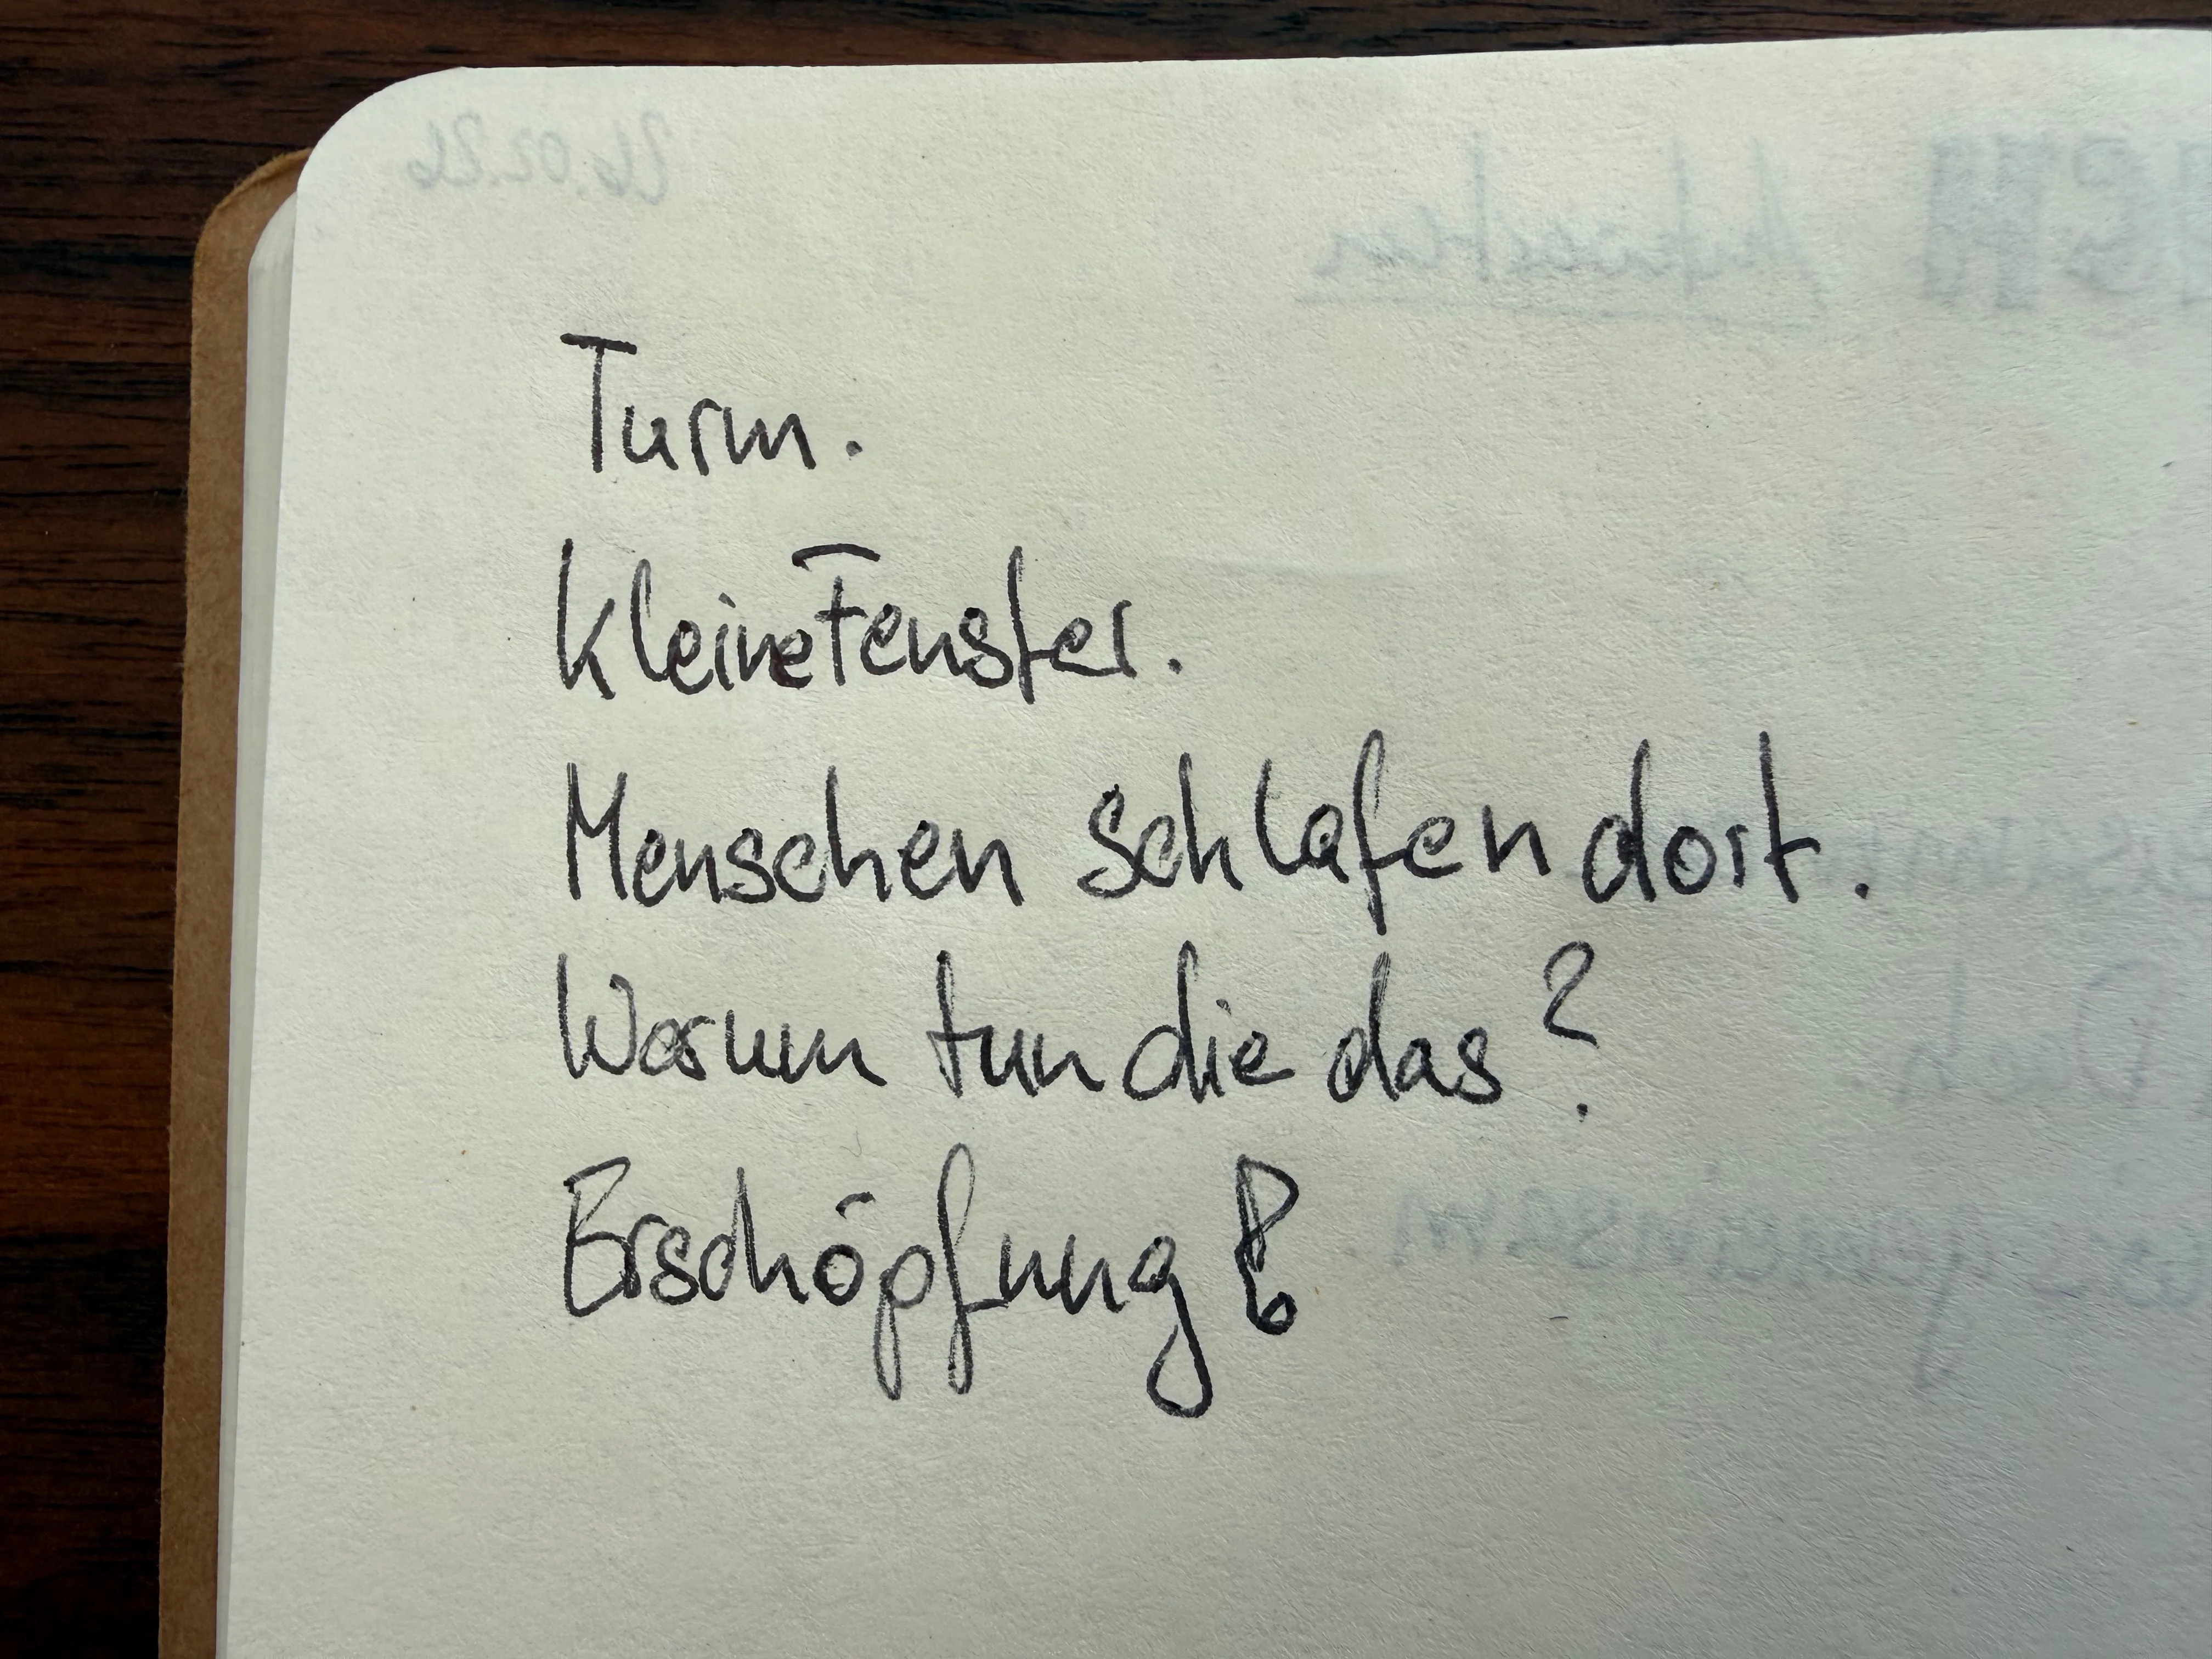 26.02.26
Aufwachen
Turm.
Kleine Fenster.
Menschen schlafen dort.
Warum tun die das?
Erschöpfung!